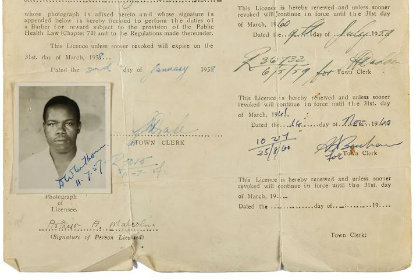 whose photograph is affixed hereto and whose signature is
appended below is hereby licensed to perform the duties of
a Barber for reward subject to the provisions of the Public
Health Law (Chapter 74) and to the Regulations made thereunder.
This Licence unless sooner revoked will expire on the
31st. day of March, 1958.
Dated the 2nd day of January 1958.
TOWN CLERK
11-7-57
Photograph
of
Licensee.
(Signature of Person Licensed)
This Licence is hereby renewed and unless sooner
revoked will continue in force until the 31st. day
of March, 1960
Dated the day of July 1959
R 36732
6/5/59 for Town Clerk
This Licence is hereby renewed and unless sooner
revoked will continue in force until the 31st. day
of March, 1961.
Dated the 16 day of Nov. 1960
10 27
25/8/60
for Town Clerk
This Licence is hereby renewed and unless sooner
revoked will continue in force until the 31st. day
of March, 19
Dated the day of 19
Town Clerk